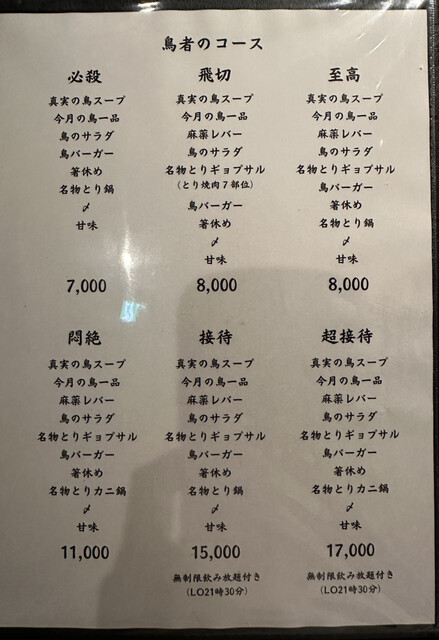 鳥者のコース
必殺
真実の鳥スープ
今月の鳥一品
鳥のサラダ
鳥バーガー
箸休め
名物とり鍋
〆
甘味
7,000
飛切
真実の鳥スープ
今月の鳥一品
麻薬レバー
鳥のサラダ
名物とりギョプサル
(とり焼肉7部位)
鳥バーガー
箸休め
〆
甘味
8,000
至高
真実の鳥スープ
今月の鳥一品
麻薬レバー
鳥のサラダ
名物とりギョプサル
鳥バーガー
箸休め
名物とり鍋
〆
甘味
8,000
悶絶
真実の鳥スープ
今月の鳥一品
麻薬レバー
鳥のサラダ
名物とりギョプサル
鳥バーガー
箸休め
名物とりカニ鍋
〆
甘味
11,000
接待
真実の鳥スープ
今月の鳥一品
麻薬レバー
鳥のサラダ
名物とりギョプサル
鳥バーガー
箸休め
名物とり鍋
〆
甘味
15,000
無制限飲み放題付き
(LO21時30分)
超接待
真実の鳥スープ
今月の鳥一品
麻薬レバー
鳥のサラダ
名物とりギョプサル
鳥バーガー
箸休め
名物とりカニ鍋
〆
甘味
17,000
無制限飲み放題付き
(LO21時30分)